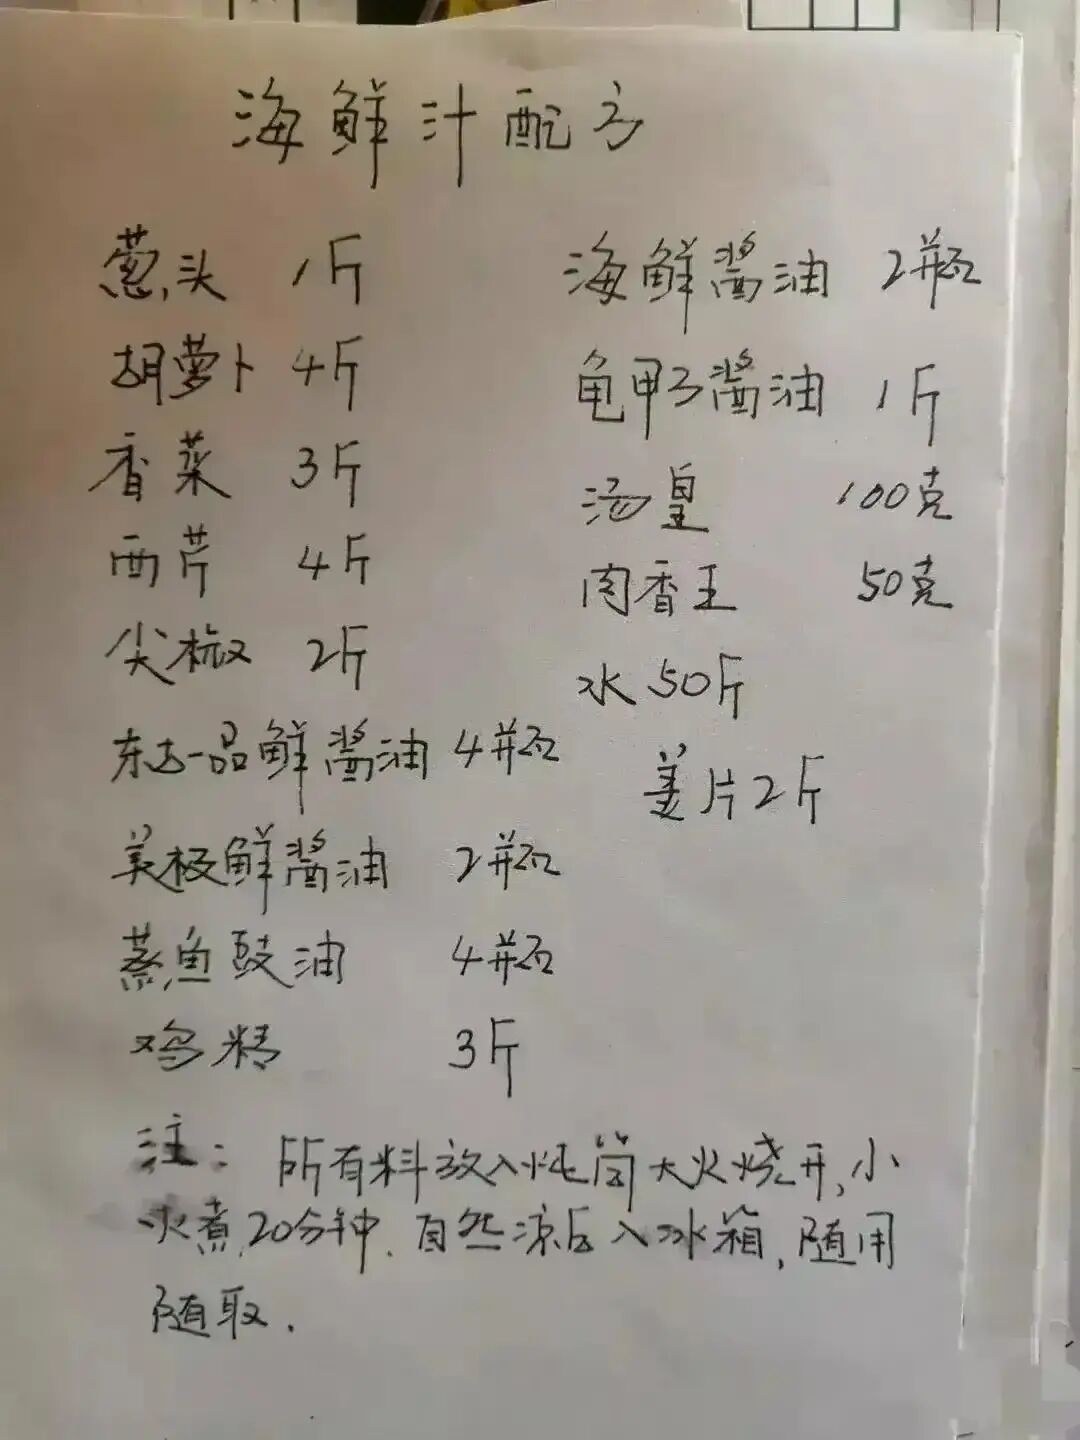 海鲜汁配方
葱头 1斤
胡萝卜 4斤
香菜 3斤
西芹 4斤
尖椒 2斤
东古一品鲜酱油 4瓶
美极鲜酱油 2瓶
蒸鱼豉油 4瓶
鸡精 3斤
海鲜酱油 2瓶
龟甲万酱油 1斤
汤皇 100克
肉香王 50克
水 50斤
姜片2斤
注: 所有料放入炖筒大火烧开,小
火煮,20分钟.自然凉后入冰箱,随用
随取.